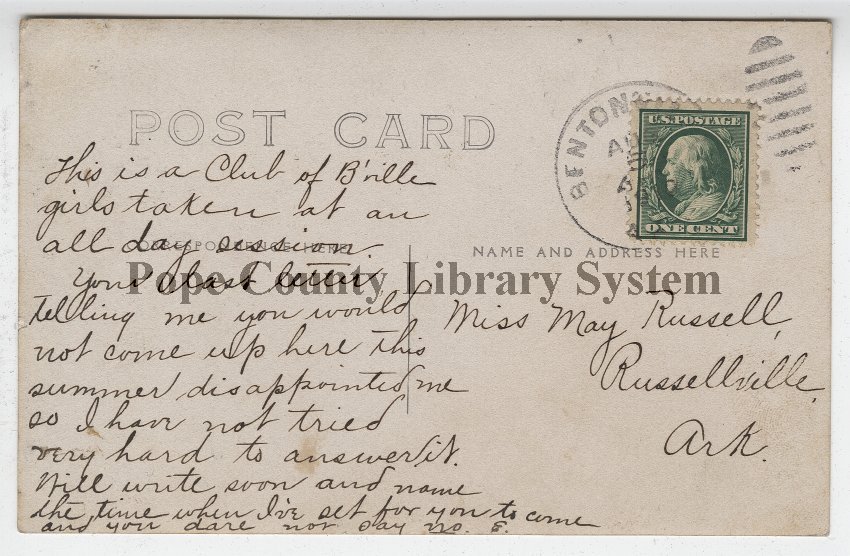 POST CARD
This is a Club of B'ville
girls taken at an
all day session
Your last letter
telling me you would
not come up here this
summer disappointed me
so I have not tried
very hard to answer it.
Will write soon and name
the time when I've set for you to come
and you dare not say no. E.
CORRESPONDENCE HERE
NAME AND ADDRESS HERE
Pope County Library System
Miss May Russell,
Russellville,
Ark.
BENTON
U.S. POSTAGE
ONE CENT